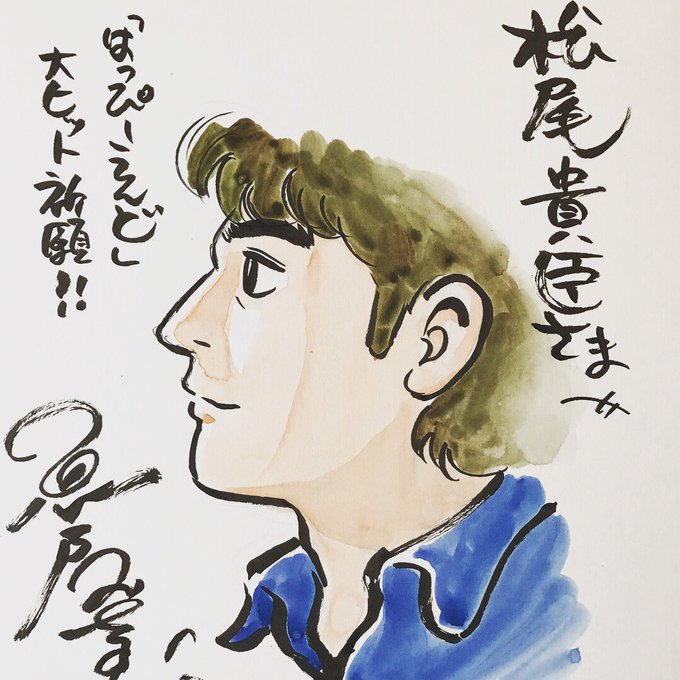 松尾貴臣さま
「はっぴーえんど」
大ヒット祈願!!
魚戸おさ